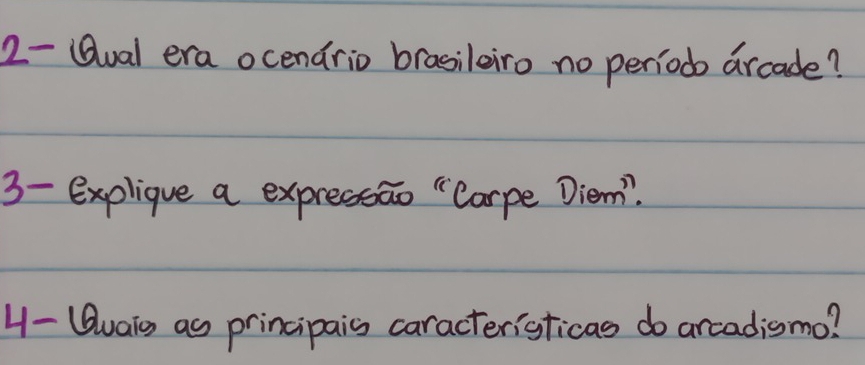 2- Qual era o cenário brasileiro no período árcade?
3- Explique a expressão "Carpe Diem".
4- Quais as principais características do arcadismo?